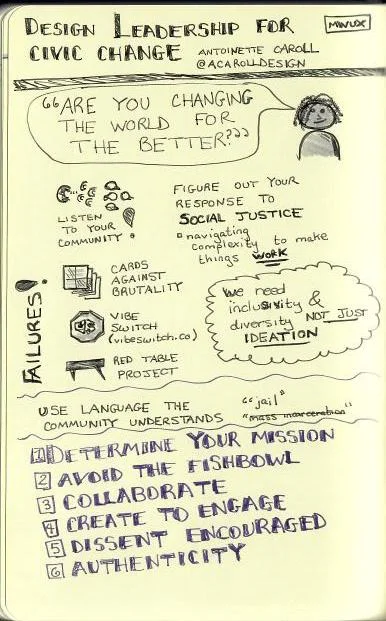 DESIGN LEADERSHIP FOR
CIVIC CHANGE
MWUX
ANTOINETTE CAROLL
@ACAROLLDESIGN
"ARE YOU CHANGING
THE WORLD FOR
THE BETTER?"
LISTEN
TO YOUR
COMMUNITY!
FIGURE OUT YOUR
RESPONSE TO
SOCIAL JUSTICE
navigating
complexity to make
things WORK
FAILURES!
CARDS
AGAINST
BRUTALITY
VIBE
SWITCH
(vibeswitch.co)
RED TABLE
PROJECT
We need
inclusivity &
diversity NOT JUST
IDEATION
USE LANGUAGE THE
COMMUNITY UNDERSTANDS
"jail"
"mass incarceration"
1 DETERMINE YOUR MISSION
2 AVOID THE FISHBOWL
3 COLLABORATE
4 CREATE TO ENGAGE
5 DISSENT ENCOURAGED
6 AUTHENTICITY